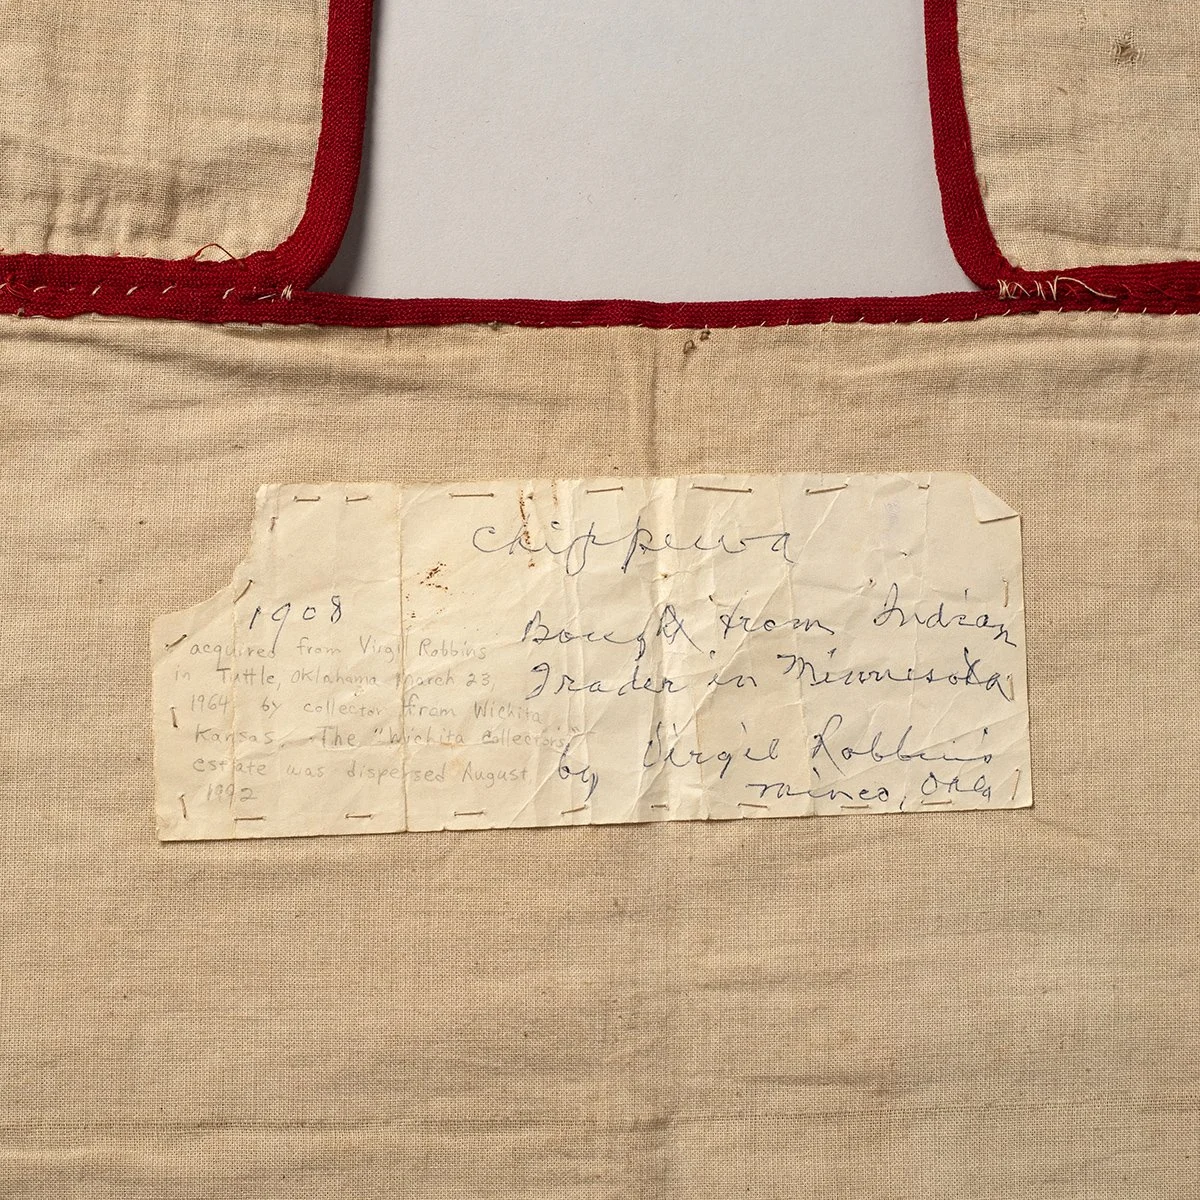 Chippewa
1908
Bought from Indian
Trader in Minnesota
by Virgil Robbins
Minco, Okla
acquired from Virgil Robbins
in Tuttle, Oklahama, March 23,
1964 by collector from Wichita
Kansas. The "Wichita Collector's"
estate was dispersed August
1992